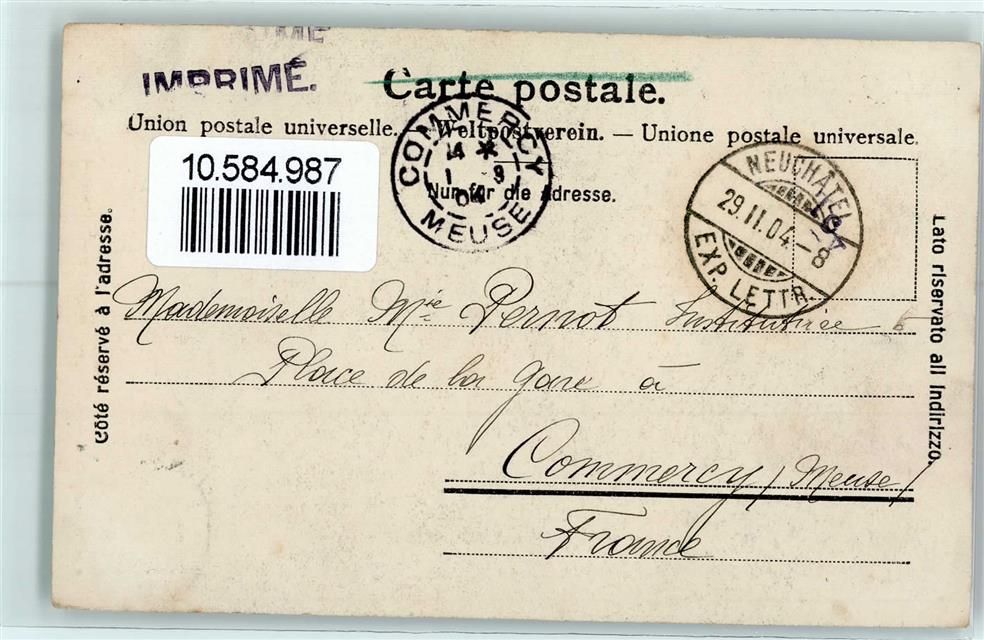 IMPRIMÉ.
Carte postale.
Union postale universelle. — Weltpostverein. — Unione postale universale.
Nur für die Adresse.
10.584.987
COMMERCY
MEUSE
04
NEUCHÂTEL
29.II.04.-8
EXP. LETTR.
Côté réservé à l'adresse.
Lato riservato all indirizzo.
Mademoiselle Mie Pernot Institutrice
Place de la gare à
Commercy (Meuse)
France